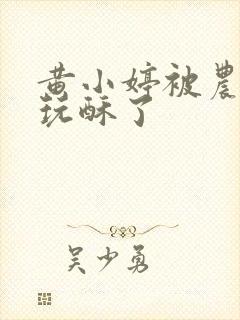 黄小婷被農
玩酥了
吴少勇